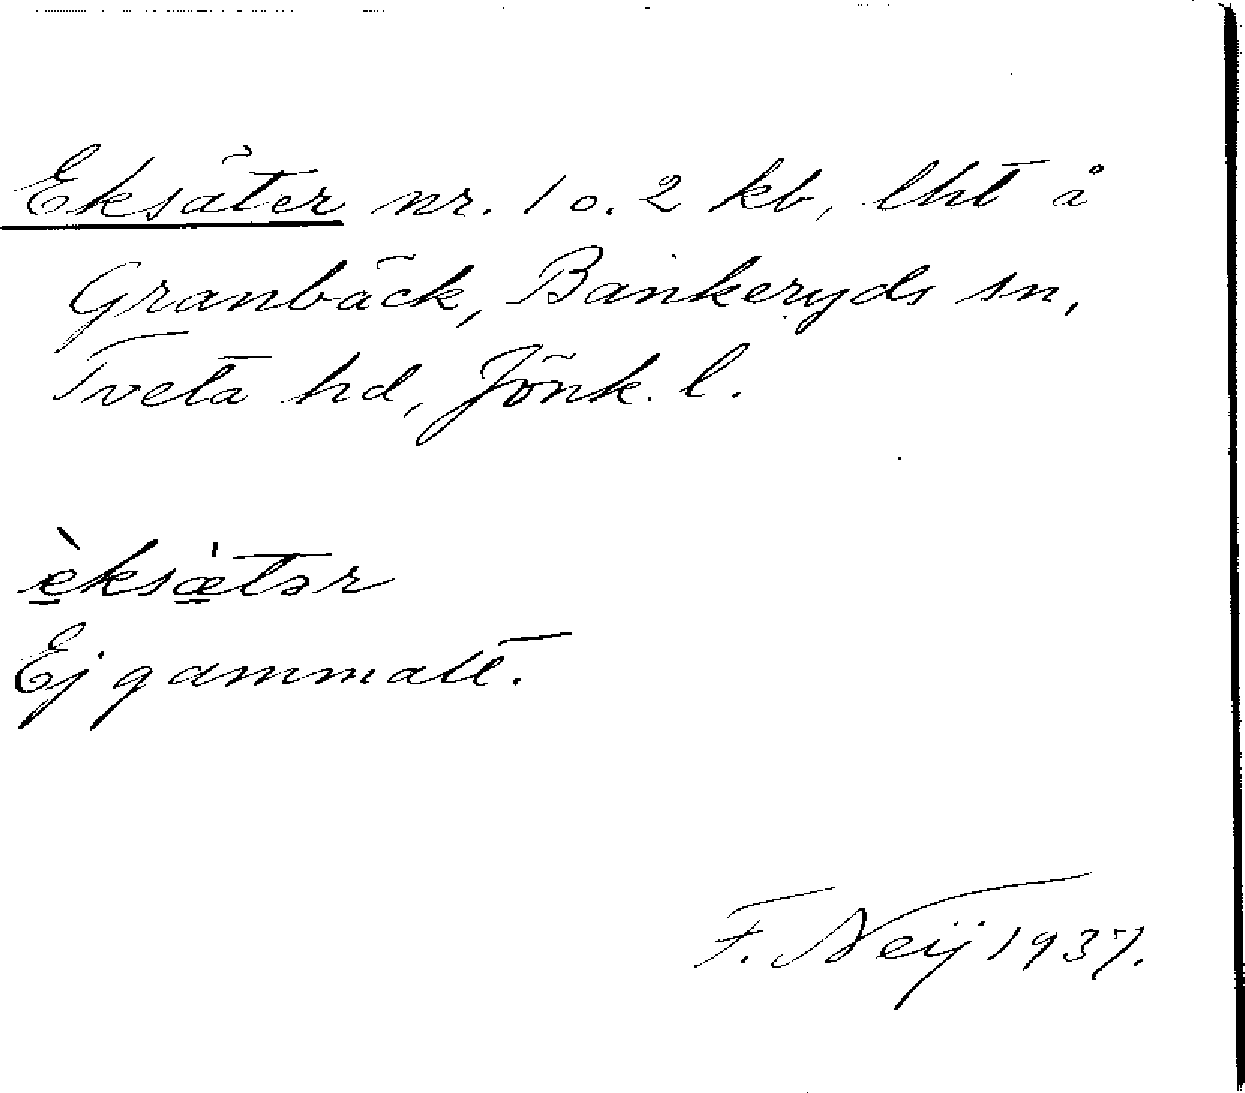 Eksäter nr. 1 o. 2 kb, lht å
Granbäck, Bankeryds sn,
Tveta hd, Jönk. l.
è̠ksæ̠̍tər
Ej gammalt.
F. Neij 1937.